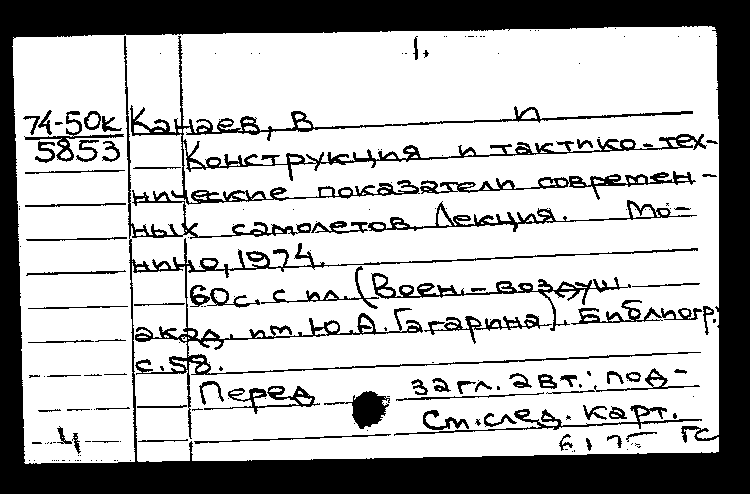 1.
74-50к Канаев, В П
5853 Конструкция и тактико-тех-
нические показатели современ-
ных самолетов. Лекция. Мо-
нино, 1974.
60 с. с ил. (Воен.-воздуш.
акад. им. Ю.А. Гагарина). Библиогр.:
с. 58.
Перед загл. авт.: под-
См. след. карт.
4 ГС